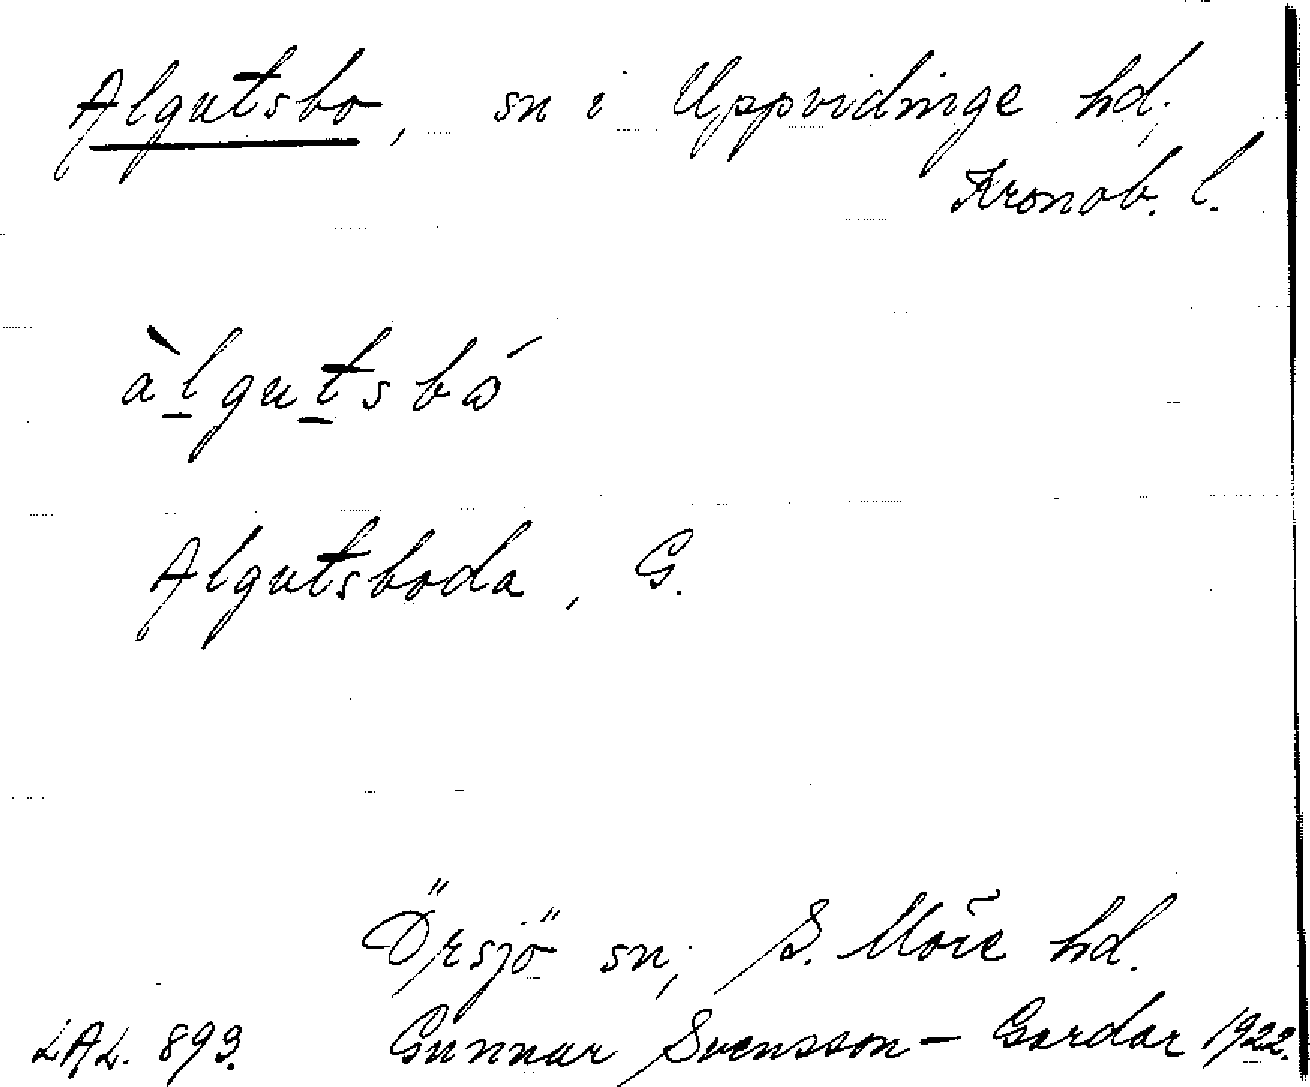 Algutsbo, sn i Uppvidinge hd,
Kronob. l.
àlgutsbó
Algutsboda, G.
Örsjö sn, S. Möre hd.
LAL. 893. Gunnar Svensson - Gardar 1922.